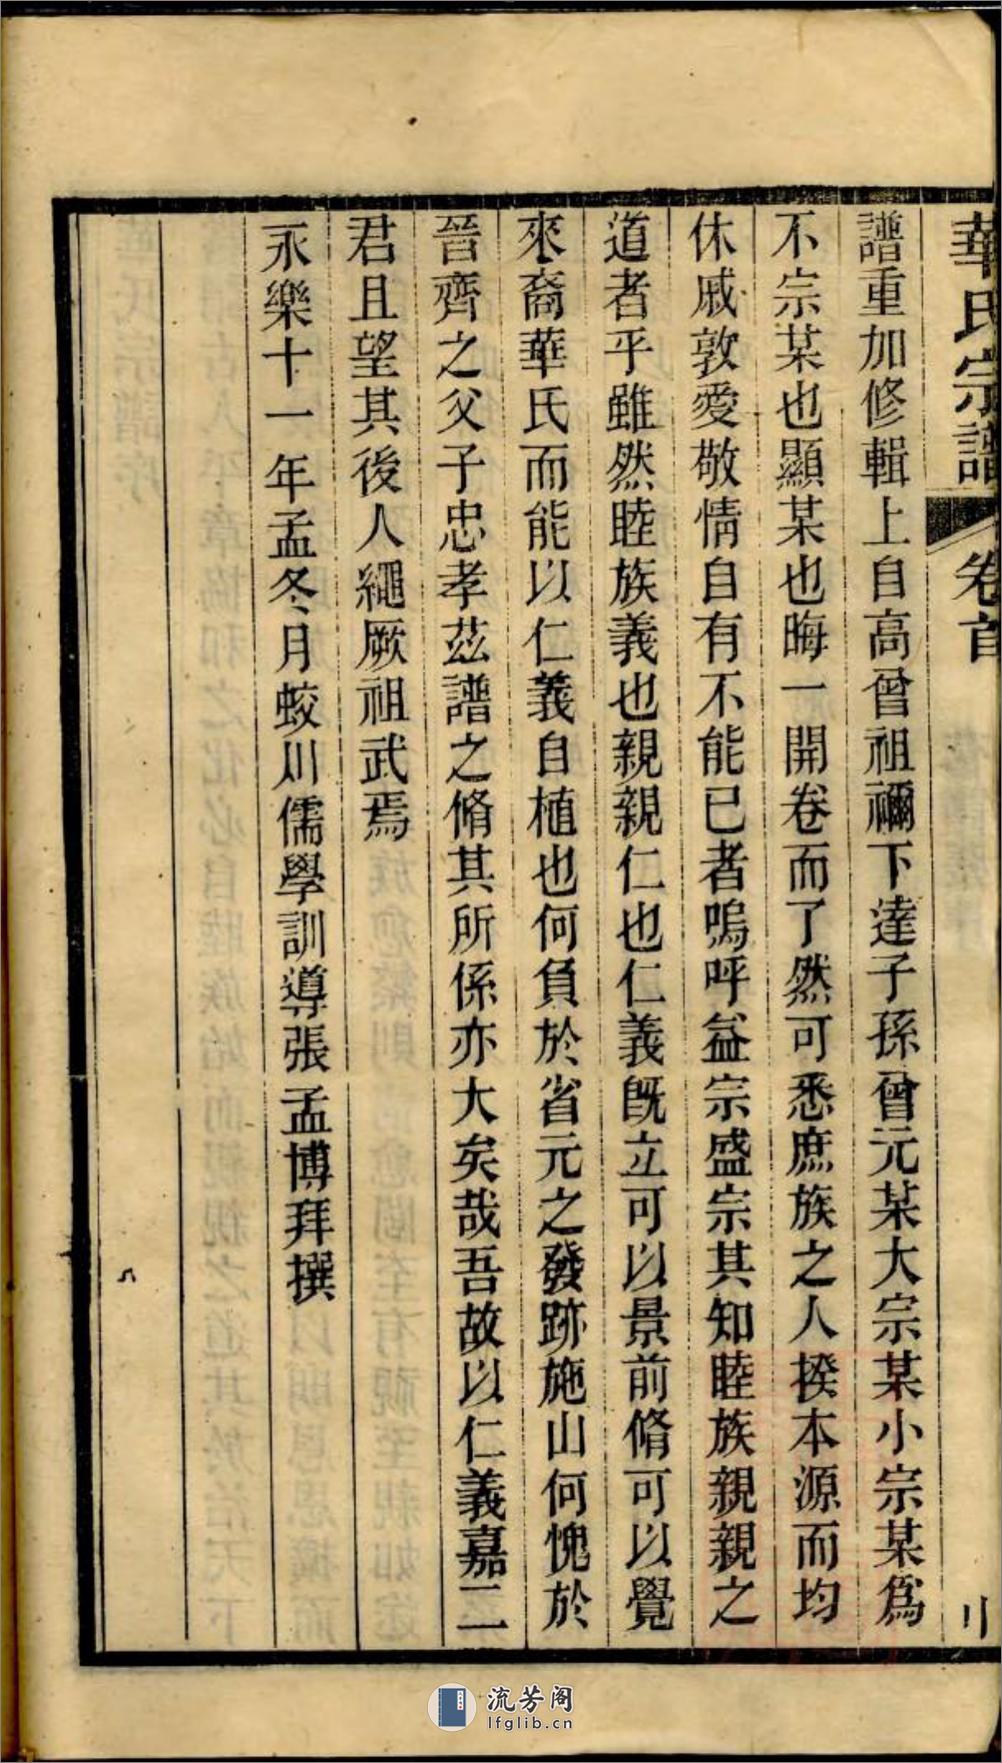 華氏宗譜 卷首
譜重加修輯上自高曾祖禰下達子孫曾元某大宗某小宗某爲
不宗某也顯某也晦一開卷而了然可悉庶族之人揆本源而均
休戚敦愛敬情自有不能已者嗚呼益宗盛宗其知睦族親親之
道者乎雖然睦族義也親親仁也仁義既立可以景前脩可以覺
來裔華氏而能以仁義自植也何負於省元之發跡施山何愧於
晉齊之父子忠孝茲譜之脩其所係亦大矣哉吾故以仁義嘉二
君且望其後人繩厥祖武焉
永樂十一年孟冬月蛟川儒學訓導張孟博拜撰
流芳阁
lfglib.cn